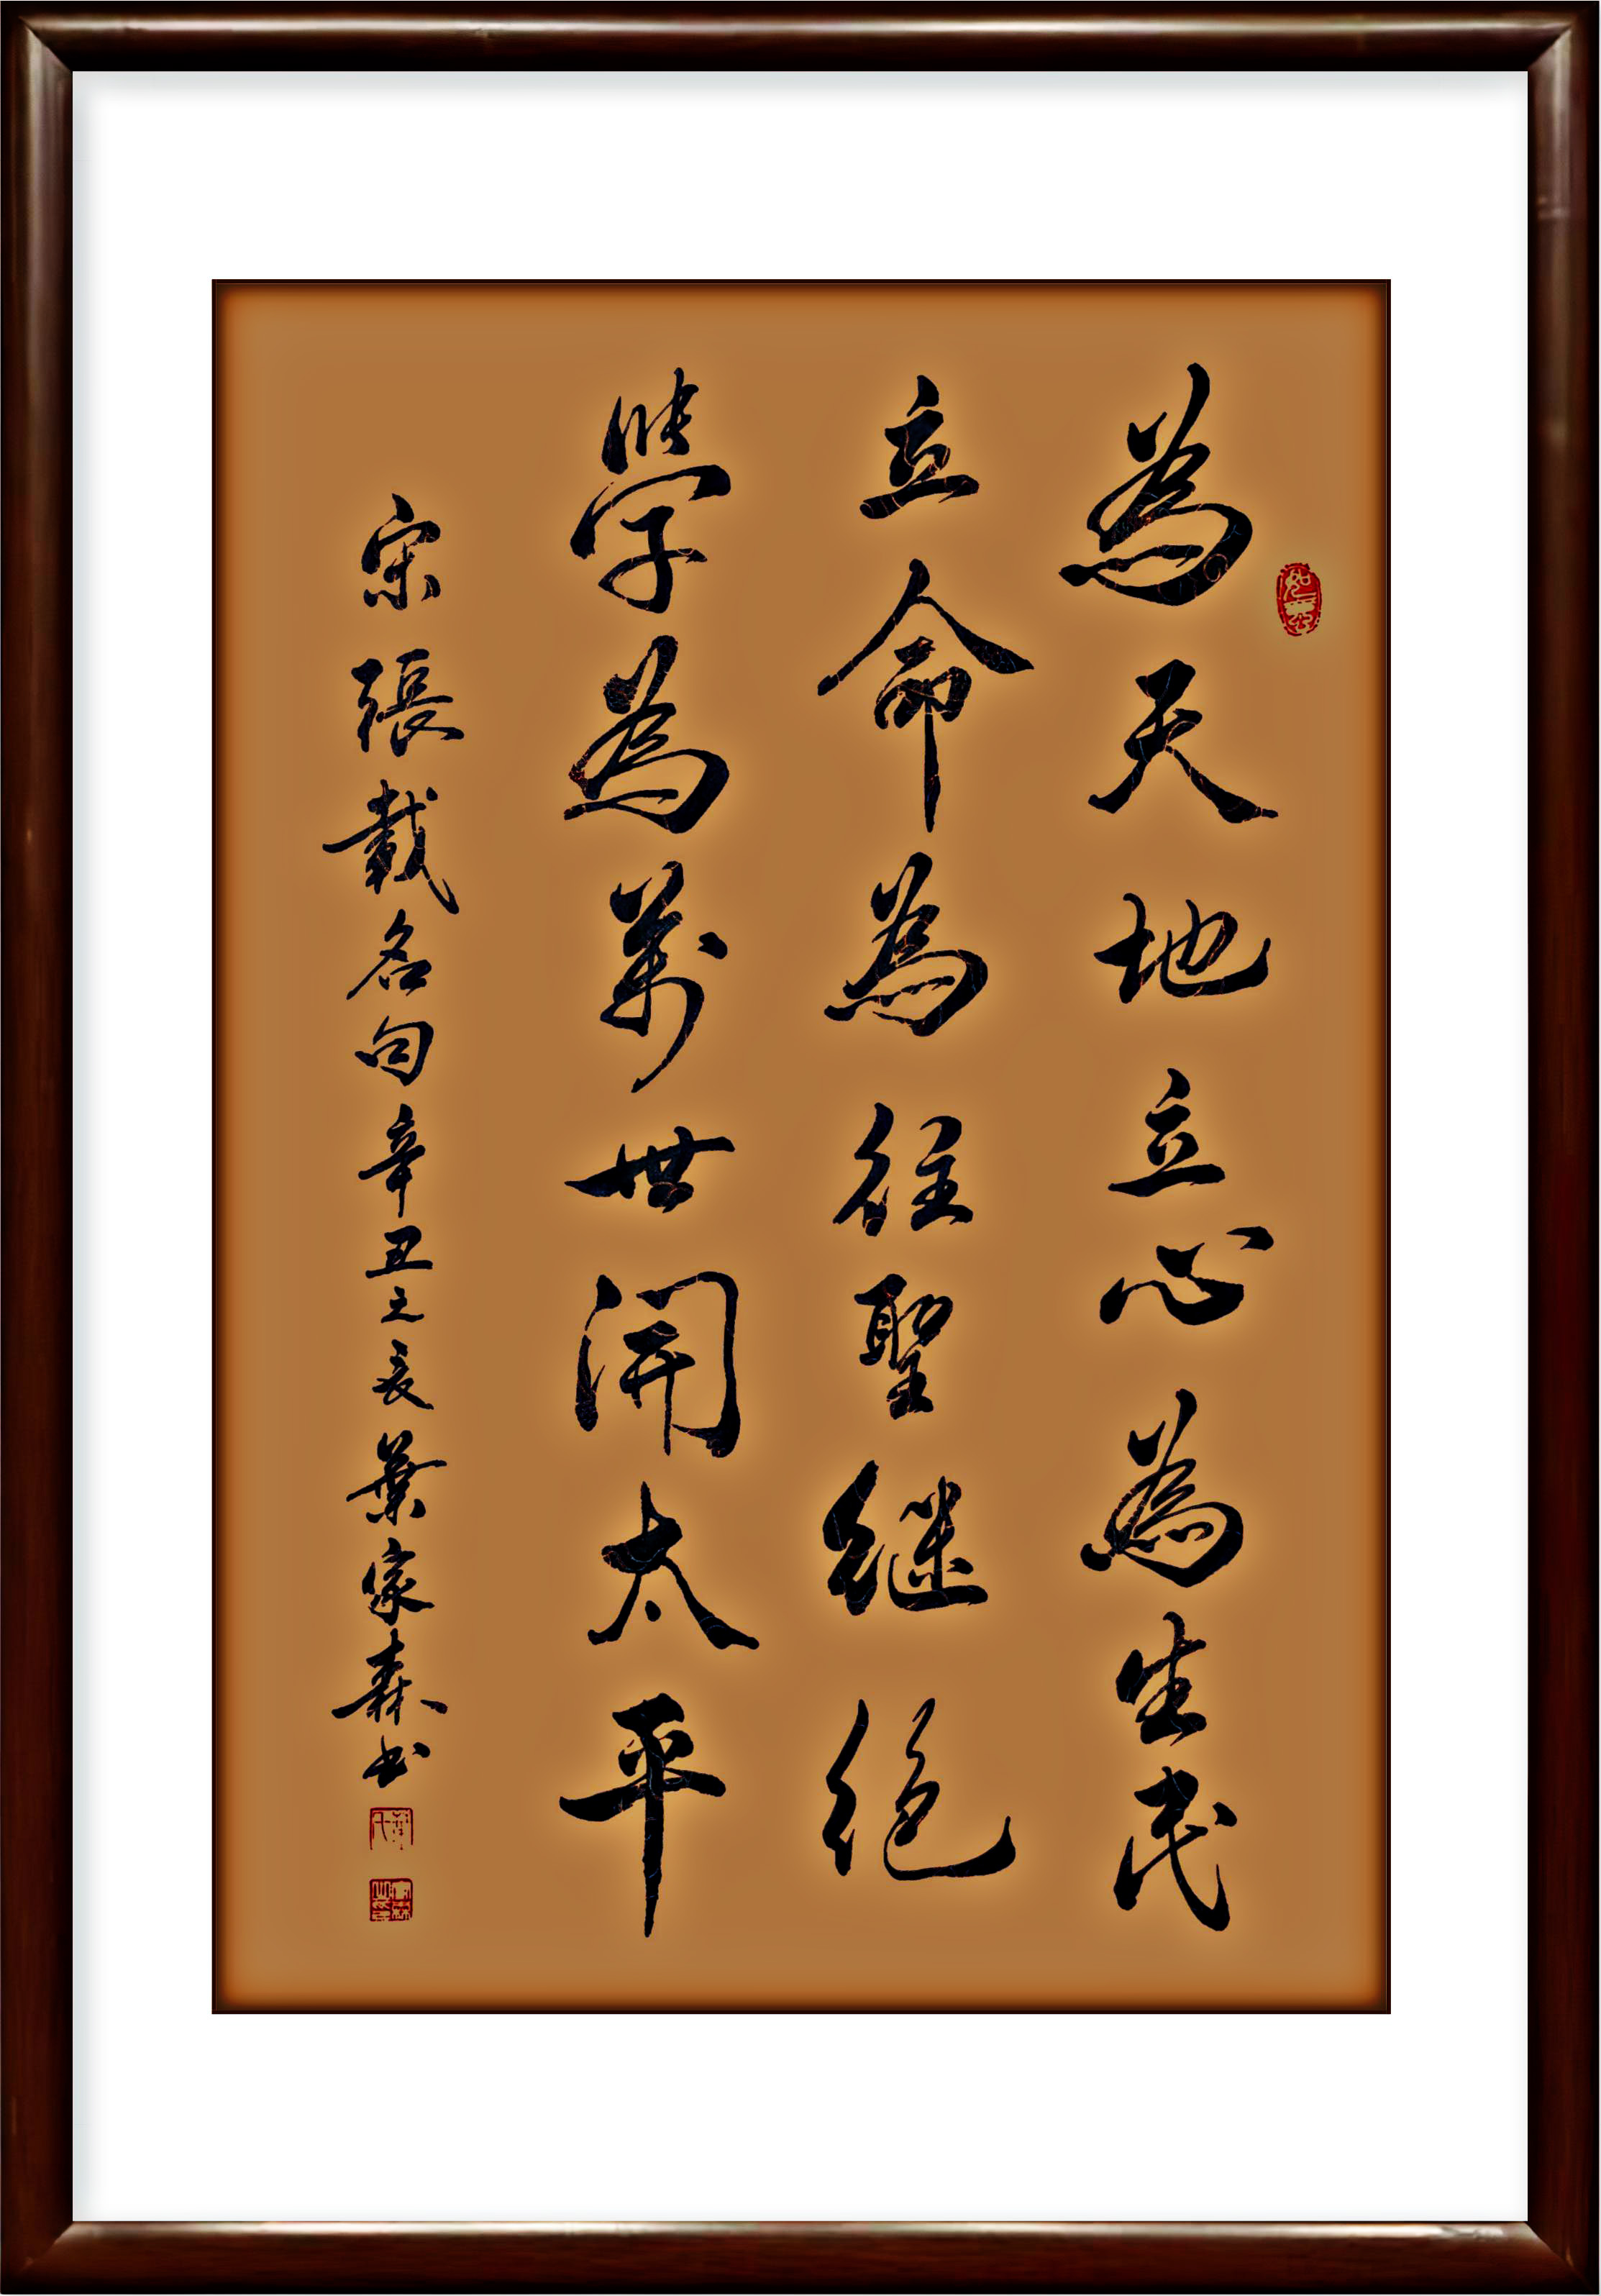 為天地立心為生民
立命為往聖继绝
學為萬世開太平
宋張載名句辛丑之夏葉家森书